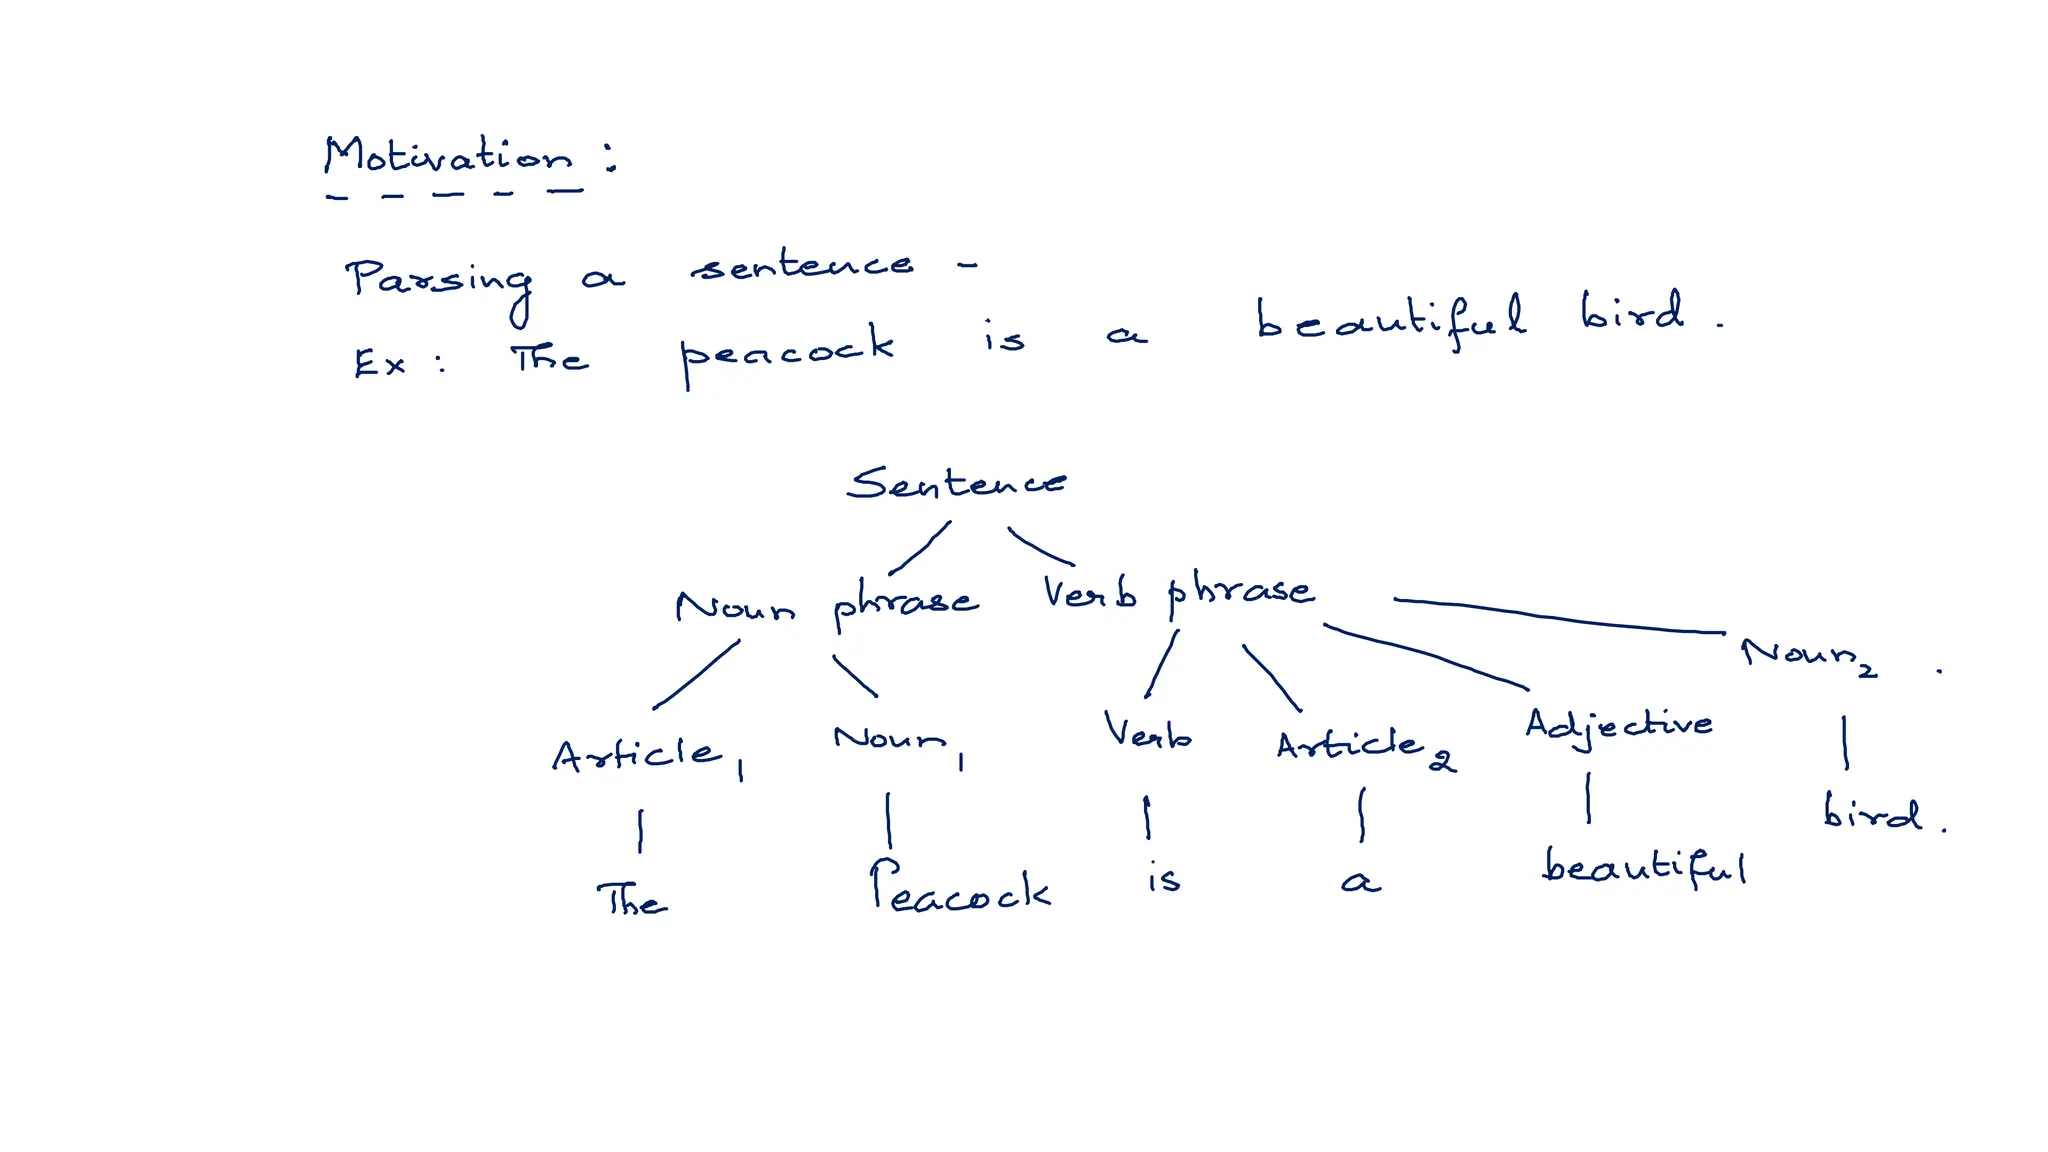 Motivation :
Parsing a sentence -
Ex : The peacock is a beautiful bird .
Sentence
Noun phrase Verb phrase
Noun2 .
Article1 Noun1 Verb Article2 Adjective
bird .
The Peacock is a beautiful